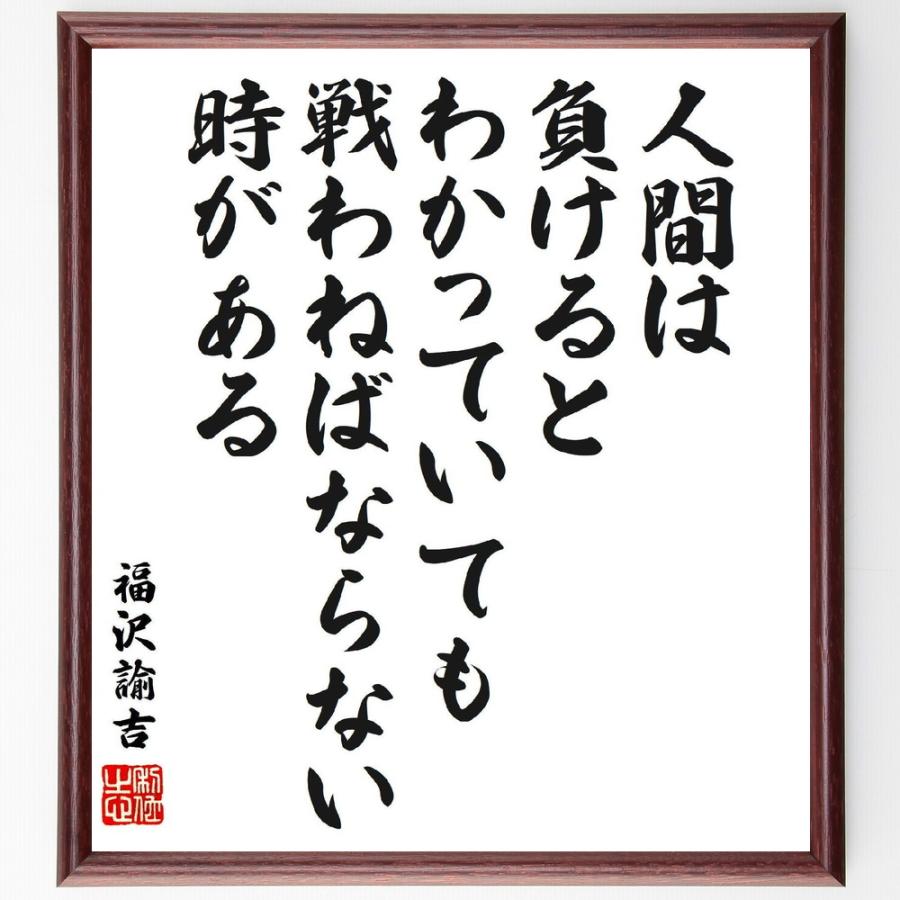 人間は
負けると
わかっていても
戦わねばならない
時がある
福沢諭吉